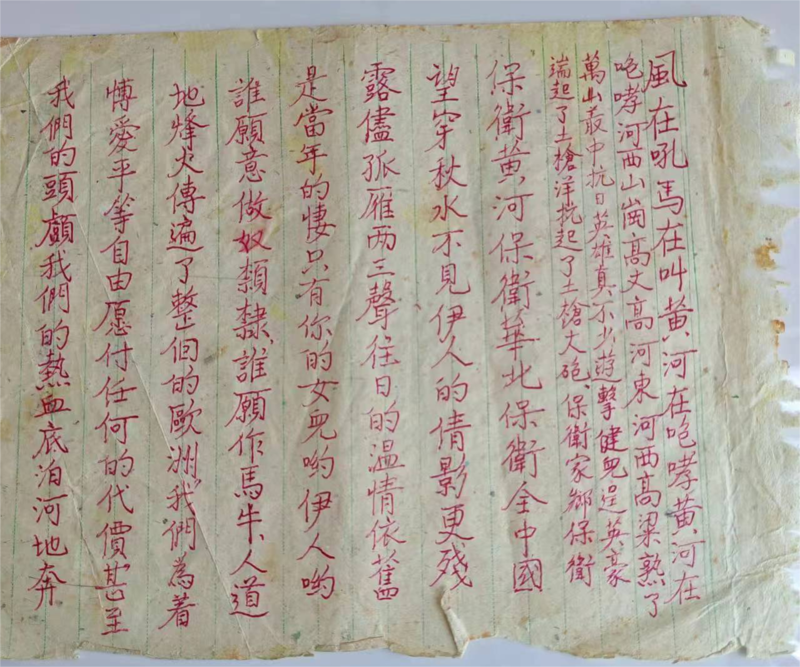 風在吼馬在叫黄河在咆哮黄河在
咆哮河西山崗高丈高河東河西高梁熟了
萬山叢中抗日英雄真不少遊擊健兒逞英豪
端起了土槍洋挠起了土槍大砲保衛家鄉保衛
保衛黄河保衛華北保衛全中國
望穿秋水不見伊人的倩影更殘
露儘孤雁两三聲往日的溫情依舊
是當年的悽只有你的女兒喲伊人喲
誰願意做奴類隸誰願作馬牛人道
地烽火傳遍了整個的歐洲我們為着
博愛平等自由愿付任何的代價甚至
我們的頭顱我們的熱血底泊河地奔